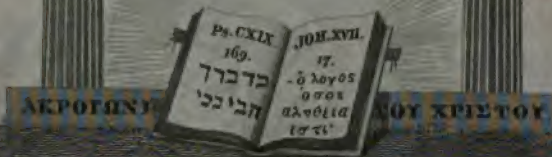 Ps. CXIX
169.
כדברך
הבינני
JOH. XVII.
17.
-ὁ λογος
ὁ σος
αληθεια
εστι'
ΑΚΡΟΓΩΝΙ ΤΟΥ ΧΡΙΣΤΟΥ